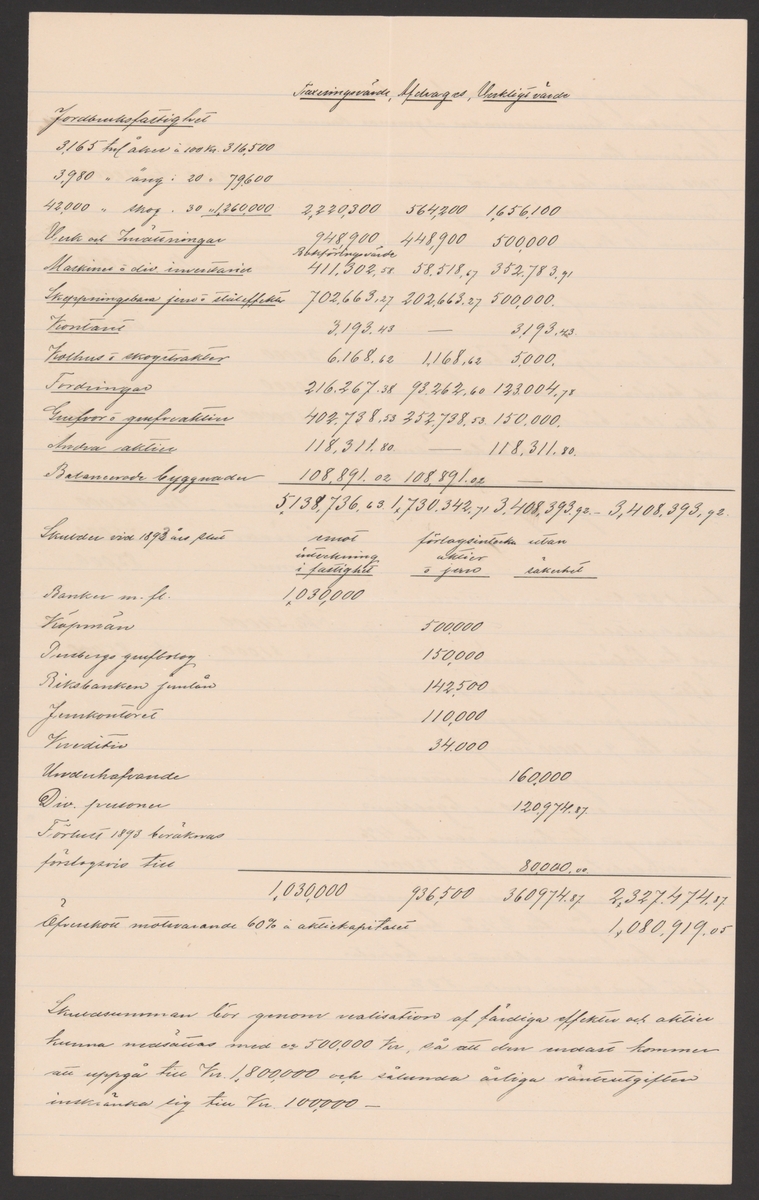 Taxeringsvärde, Afdrages, Verkligt värde
Jordbruksfastighet
3,165 tnl åker à 100 Kr. 316,500
3,980 " äng : 20 " 79,600
42,000 " skog . 30 " 1,260,000 2,220,300 564,200 1,656,100
Verk och Inrättningar 948,900 448,900 500,000
Bokföringsvärde
Maskiner o div. inventarier 411,302,58 58,518,67 352.783,91
Skeppningsbara jern o stål effekter 702,663.27 202,663.27 500,000.
Kontant 3.193.43 — 3,193,43
Kolhus o skogstrakter 6.168,62 1,168,62 5,000.
Fordringar 216.267.38 93.262.60 123.004,78
Grufvor o grufveaktier 402.738,53 252,738,53. 150,000.
Andra aktier 118,311.80. — 118,311.80.
Balanserade byggnader 108,891.02 108,891.02 —
5,138,736,63. 1,730.342,71 3,408,393.92.– 3,408,393,92.
Skulder vid 1893 års slut emot förlagsinteckn utan
inteckning aktier
i fastighet o jern säkerhet
Banker m. fl. 1,030,000
Köpmän 500,000
Persbergs grufbolag 150,000
Riksbanken jernlån 142,500
Jernkontoret 110,000
Kreditiv 34.000
Underhafvande 160,000
Div. personer 120,974.87.
Förlust 1893 beräknas
förslagsvis till 80,000.00
1,030,000 936,500 360974.87. 2,327.474.87.
Öfverskott motsvarande 60% å aktiekapitalet 1,080,919.05
Skuldsumman bör genom realisation af färdiga effekter och aktier
kunna nedsättas med ca 500,000 Kr, så att den endast kommer
att uppgå till Kr. 1,800,000 och sålunda årliga ränteutgiften
inskränka sig till Kr. 100,000 —